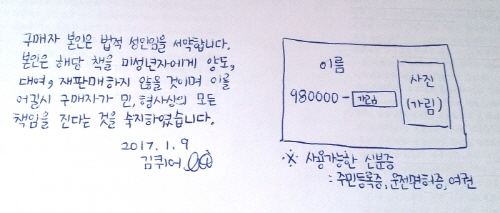 구매자 본인은 법적 성인임을 서약합니다.
본인은 해당 책을 미성년자에게 양도,
대여, 재판매하지 않을 것이며 이를
어길시 구매자가 민, 형사상의 모든
책임을 진다는 것을 숙지하였습니다.
2017.1.9
김퀴어
이름
980000-가림
사진
(가림)
※ 사용가능한 신분증
: 주민등록증, 운전면허증, 여권